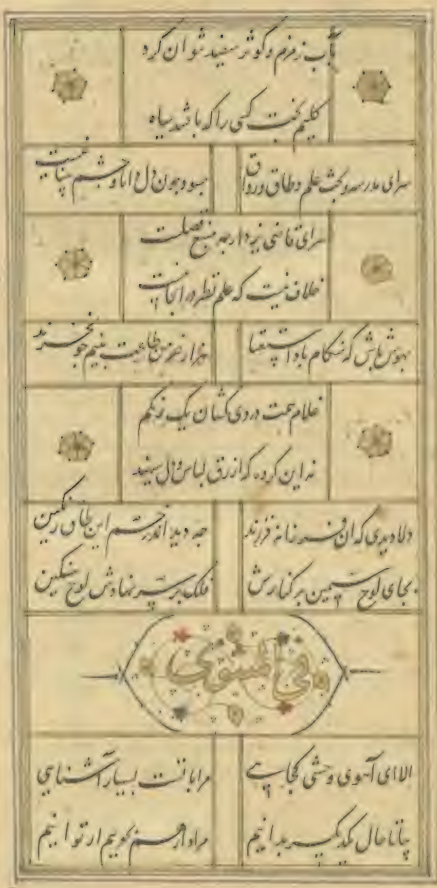 بآب زمزم و کوثر سفید نتوان کرد
کلیم بخت کسی را که باشد سیاه
سرای مدرسه و بحث علم و طاق و رواق
چه سود چون دل دانا و چشم بینا نیست
سرای قاضی یزد ارچه منبع فضلست
خلاف نیست که علم نظر در آنجا نیست
بهوش باش که هنگام باد استغنا
هزار خرمن طاعت بنیم جو نخرند
غلام همت دردی کشان یک رنگم
نه این گروه که ازرق لباس و دل سیهند
دلا دیدی که آن فرزانه فرزند
چه دید اندر خم این طاق رنگین
بجای لوح سیمین بر کنارش
فلک بر سر نهادش لوح سنگین
وفی المثنوی
الا ای آهوی وحشی کجایی
مرا با تست بسیار آشنایی
بیا تا حال یکدیگر بدانیم
مراد هم بجوییم ار توانیم